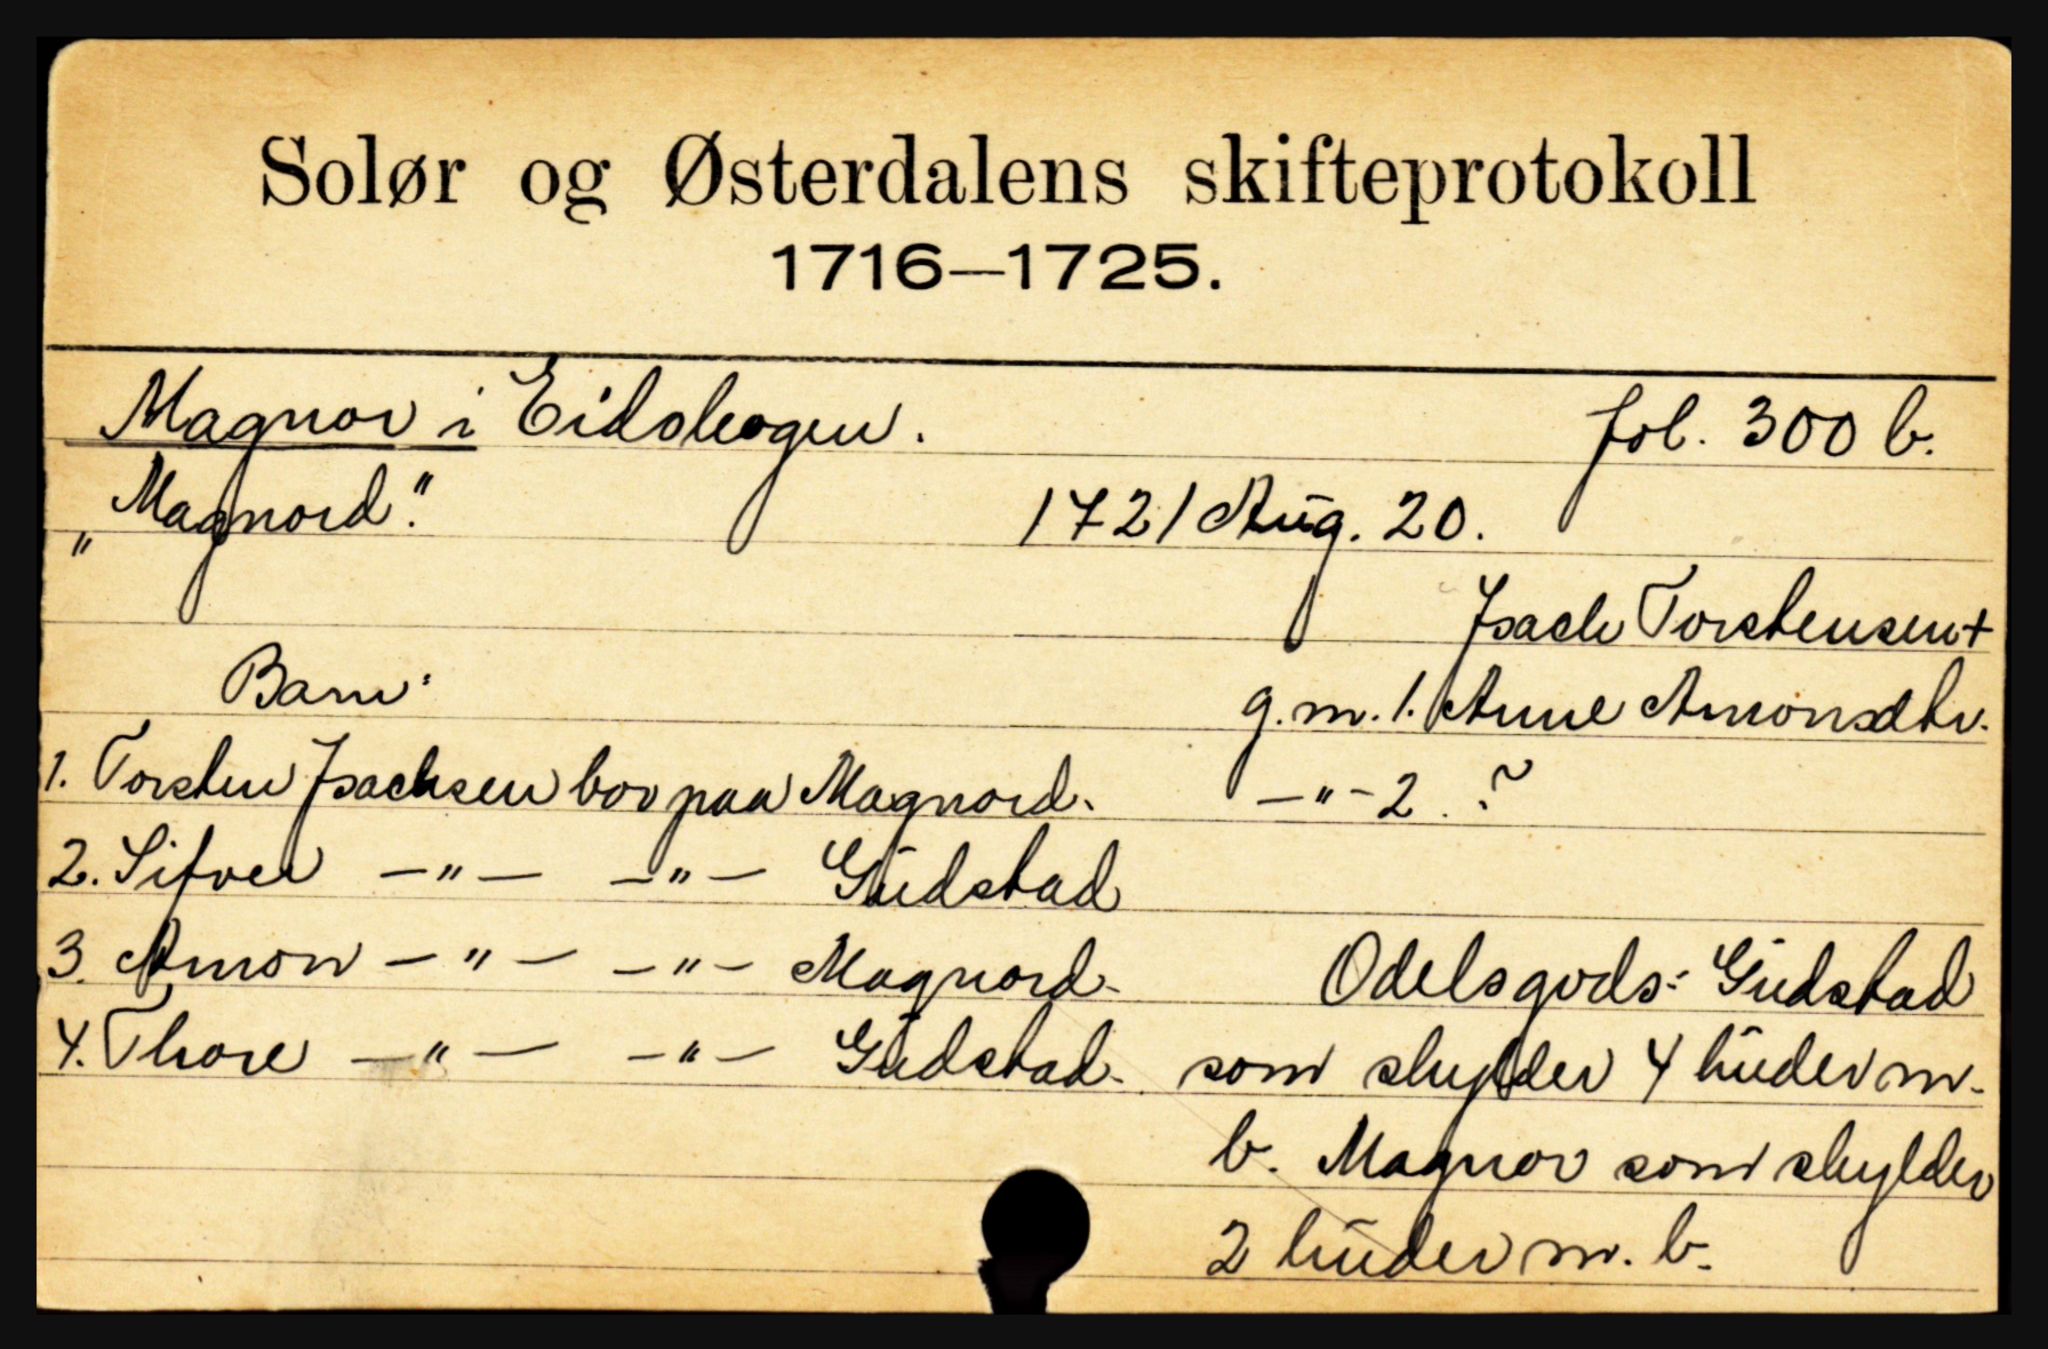 Solør og Østerdalens skifteprotokoll
1716—1725.
Magnor i Eidskogen. fol. 300 b.
„Magnord." 1721 Aug. 20.
Isach Torstensen +
Barn: g.m. 1. Anne Amonsdtr.
1. Torsten Isachsen bor paa Magnord. —"— 2. ?
2. Sifver —"— —"— Gudstad
3. Amon —"— —"— Magnord. Odelsgods: Gudstad
4. Thore —"— —"— Gudstad. som skylder 4 huder m.
b. Magnor som skylder
2 huder m. b.